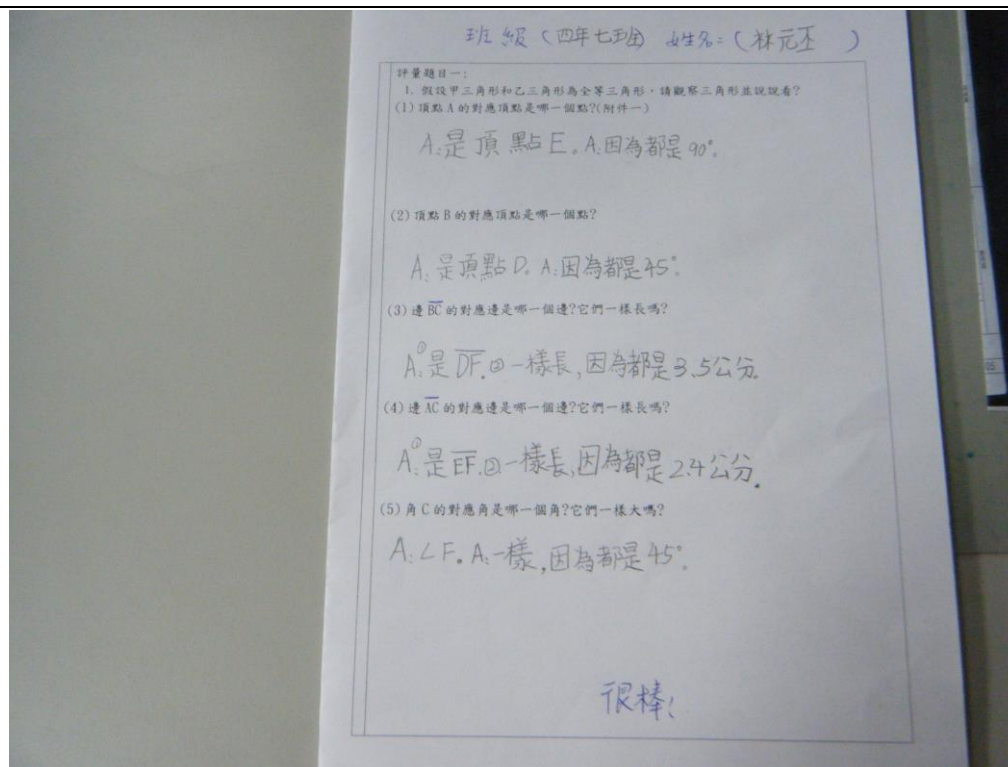 班級(四年七班) 姓名:(林元丕 )
評量題目一:
1. 假設甲三角形和乙三角形為全等三角形,請觀察三角形並說說看?
(1)頂點A的對應頂點是哪一個點?(附件一)
A:是頂點E。A:因為都是90°。
(2)頂點B的對應頂點是哪一個點?
A:是頂點D。A:因為都是45°。
(3)邊BC的對應邊是哪一個邊?它們一樣長嗎?
A:①是DF.②一樣長,因為都是3.5公分.
(4)邊AC的對應邊是哪一個邊?它們一樣長嗎?
A:①是EF.②一樣長,因為都是2.4公分.
(5)角C的對應角是哪一個角?它們一樣大嗎?
A:∠F。A:一樣,因為都是45°。
很棒!